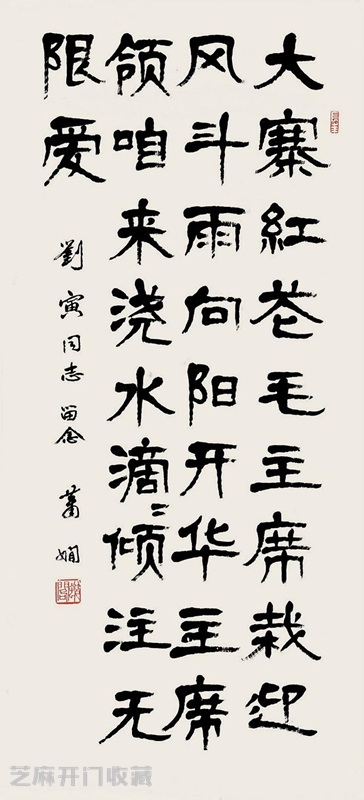 大寨红花毛主席栽迎
风斗雨向阳开华主席
领咱来浇水滴〻倾注无
限爱
刘寅同志留念 萧娴
芝麻开门收藏